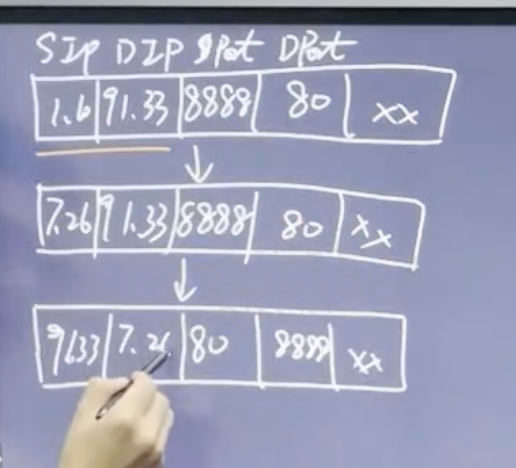 SIP DIP SPort DPort
1.6 91.33 8888 80 xx
7.26 91.33 8888 80 xx
91.33 7.26 80 8888 xx